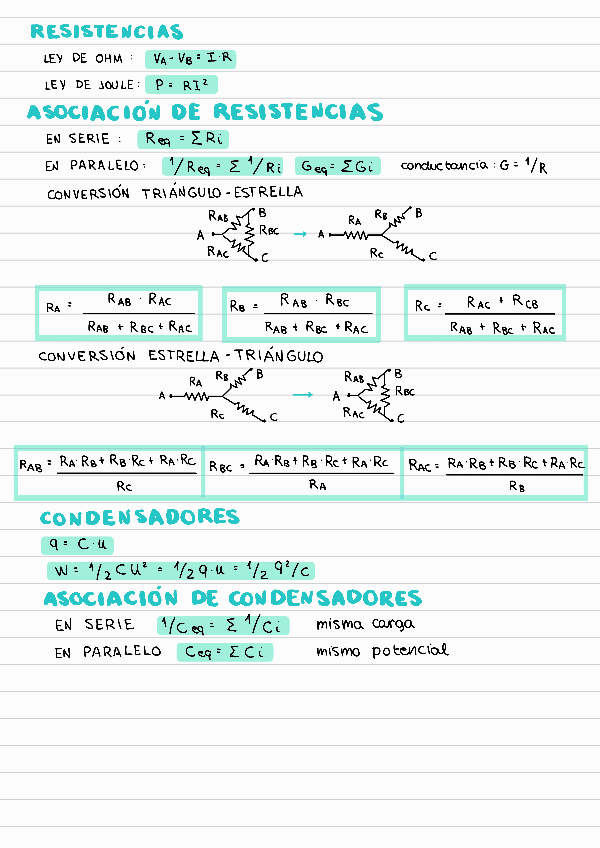 RESISTENCIAS
LEY DE OHM: VA-VB = I·R
LEY DE JOULE: P = RI²
ASOCIACIÓN DE RESISTENCIAS
EN SERIE: Req = ΣRi
EN PARALELO: 1/Req = Σ 1/Ri Geq = ΣGi conductancia: G = 1/R
CONVERSIÓN TRIÁNGULO-ESTRELLA
A RAB B RBC RAC C → A RA RB B RC C
RA = RAB · RAC / RAB + RBC + RAC RB = RAB · RBC / RAB + RBC + RAC RC = RAC + RCB / RAB + RBC + RAC
CONVERSIÓN ESTRELLA-TRIÁNGULO
A RA RB B RC C → A RAB B RBC RAC C
RAB = RA·RB + RB·RC + RA·RC / RC RBC = RA·RB + RB·RC + RA·RC / RA RAC = RA·RB + RB·RC + RA·RC / RB
CONDENSADORES
q = C·u
W = 1/2 CU² = 1/2 q·u = 1/2 q²/c
ASOCIACIÓN DE CONDENSADORES
EN SERIE 1/Ceq = Σ 1/Ci misma carga
EN PARALELO Ceq = ΣCi mismo potencial